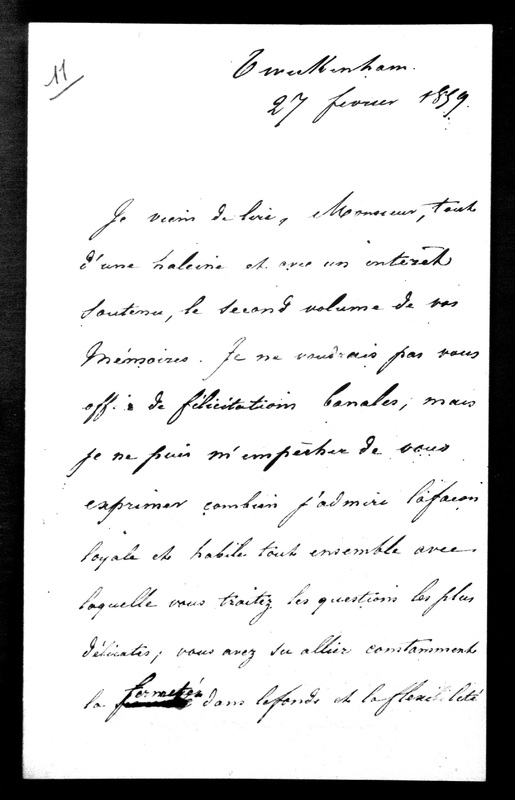 11
Twickenham.
27 fevrier 1859.
Je viens de lire, Monsieur, tout
d'une haleine et avec un intérêt
soutenu, le second volume de vos
Mémoires. Je ne voudrais pas vous
offrir de félicitations banales, mais
je ne puis m'empêcher de vous
exprimer combien j'admire la façon
loyale et habile tout ensemble avec
laquelle vous traitez les questions les plus
délicates; vous avez su allier constamment
la fermeté dans le fonds et la flexibilité